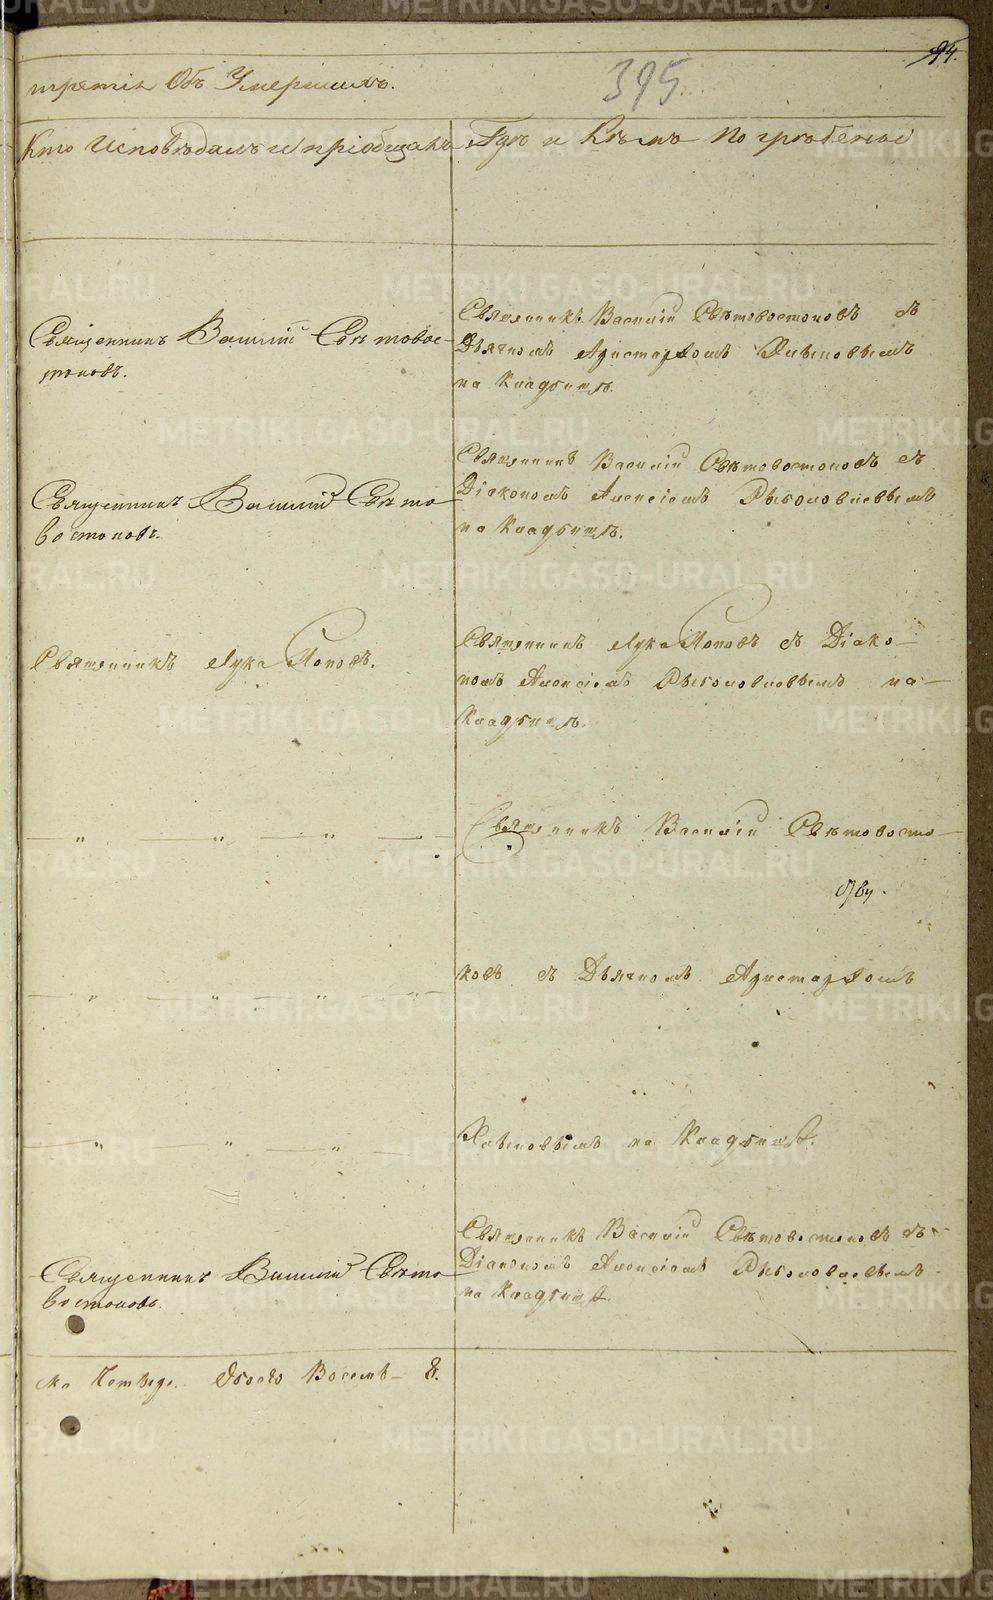 третія Объ Умершихъ.
395
94.
Кто Исповѣдалъ и пріобщалъ
Гдѣ и Кѣмъ погребены
Священникъ Василій Свѣтовос-
токовъ.
Священникъ Василій Свѣтовостоковъ съ
Дьячкомъ Аристархомъ Хлыновымъ
на Кладбищѣ.
Священникъ Василій Свѣто
востоковъ.
Священникъ Василій Свѣтовостоковъ съ
Діакономъ Алексіемъ
на Кладбищѣ.
Священникъ Лука Поповъ.
Священникъ Лука Поповъ съ Діако-
номъ Алексіемъ на
Кладбищѣ.
— " — " — " —
Священникъ Василій Свѣтовосто-
— " — " — " —
ковъ съ Дьячкомъ Аристархомъ
— " — " — " —
Хлыновымъ на Кладбищѣ.
Священникъ Василій Свѣто
востоковъ.
Священникъ Василій Свѣтовостоковъ съ
Діакономъ Алексіемъ
на Кладбищѣ.
Обоего Восемь - 8.
METRIKI.GASO-URAL.RU